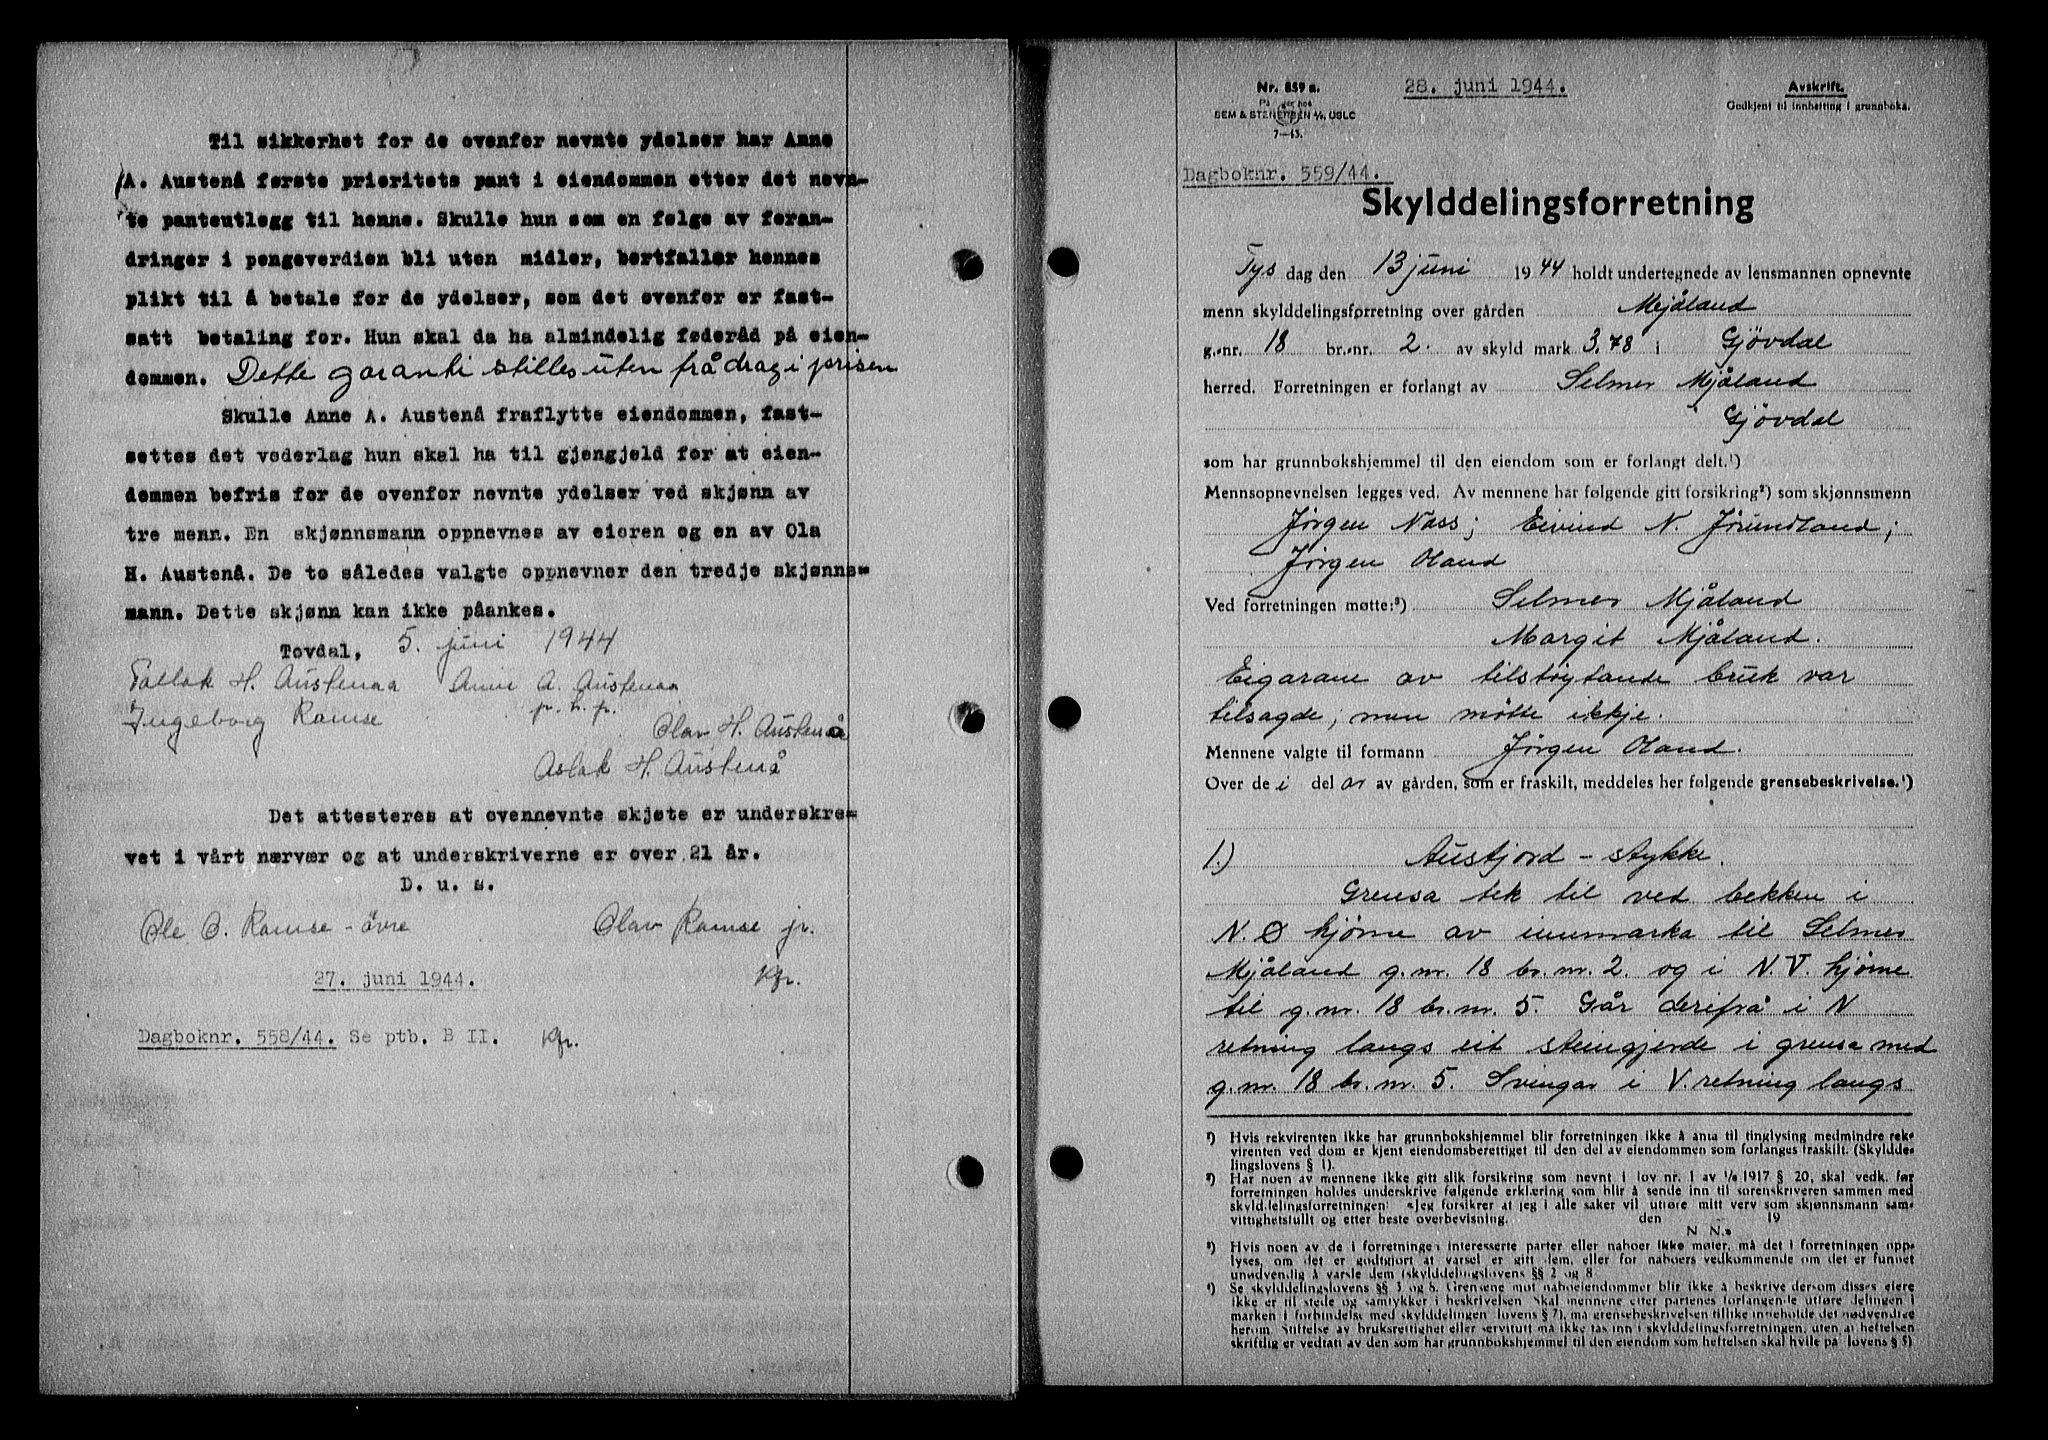 Til sikkerhet for de ovenfor nevnte ydelser har Anne
A. Austenå første prioritets pant i eiendommen etter det nevn-
te panteutlegg til henne. Skulle hun som en følge av foran-
dringer i pengeverdien bli uten midler, bortfaller hennes
plikt til å betale for de ydelser, som det ovenfor er fast-
satt betaling for. Hun skal da ha almindelig føderåd på eien-
dommen. Dette garanti stilles uten frådrag i prisen
Skulle Anne A. Austenå fraflytte eiendommen, fast-
settes det vederlag hun skal ha til gjengjeld for at eien-
dommen befris for de ovenfor nevnte ydelser ved skjønn av
tre menn. En skjønnsmann oppnevnes av eieren og en av Ola
H. Austenå. De to således valgte oppnevner den tredje skjønns-
mann. Dette skjønn kan ikke påankes.
Tovdal, 5. juni 1944
Tallak H. Austenaa Anne A. Austenaa
Ingeborg Ramse p. h. p.
Olav H. Austenå
Aslak H. Austenå
Det attesteres at ovennevnte skjøte er underskre-
vet i vårt nærvær og at underskriverne er over 21 år.
D. u. s.
Ole O. Ramse - övre Olav Ramse jr.
27. juni 1944. Kfr.
Dagboknr. 558/44. Se ptb. B II. Kfr.
Nr. 859 a. 28. juni 1944. Avskrift.
På lager hos Godkjent til innhefting i grunnboka.
SEM & STENERSEN A/S, OSLO
7—43.
Dagboknr. 559/44.
Skylddelingsforretning
Tys dag den 13 juni 1944 holdt undertegnede av lensmannen opnevnte
menn skylddelingsforretning over gården Mjåland
g.-nr. 18 br.-nr. 2. av skyld mark 3.78 i Gjövdal
herred. Forretningen er forlangt av Selmer Mjåland
Gjövdal
som har grunnbokshjemmel til den eiendom som er forlangt delt.¹)
Mennsopnevnelsen legges ved. Av mennene har følgende gitt forsikring²) som skjønnsmenn
Jørgen Nass; Eivind N. Jørundland;
Jørgen Oland
Ved forretningen møtte:³) Selmer Mjåland
Margit Mjåland.
Eigarane av tilstøytande bruk var
tilsagde, men møtte ikkje.
Mennene valgte til formann Jørgen Oland.
Over de i del ar av gården, som er fraskilt, meddeles her følgende grensebeskrivelse.⁴)
1.) Austjord - stykke.
Grensa tek til ved bekken i
N.Ø hjørne av innmarka til Selmer
Mjåland g. nr. 18 br. nr. 2. og i N.V. hjørne
til g. nr. 18 br. nr. 5. Går derifrå i N
retning langs eit steingjerde i grensa med
g. nr. 18 br. nr. 5. Svingar i V. retning langs
¹) Hvis rekvirenten ikke har grunnbokshjemmel blir forretningen ikke å anta til tinglysing medmindre rek-
virenten ved dom er kjent eiendomsberettiget til den del av eiendommen som forlanges fraskilt. (Skyldde-
lingslovens § 1).
²) Har noen av mennene ikke gitt slik forsikring som nevnt i lov nr. 1 av 1/6 1917 § 20, skal vedk. før
forretningen holdes underskrive følgende erklæring som blir å sende inn til sorenskriveren sammen med
skylddelingsforretningen: «Jeg forsikrer at jeg i alle saker vil utføre mitt verv som skjønnsmann sam-
vittighetsfullt og etter beste overbevisning. den 19
N. N.»
³) Hvis noen av de i forretningen interesserte parter eller naboer ikke møter, må det i forretningen opp-
lyses, om det er godtgjort at varsel er gitt dem, eller for naboers vedkommende om det er funnet
unødvendig å varsle dem (skylddelingslovens §§ 2 og 8
⁴) Se skylddelingslovens §§ 5 og 8. Grensene mot naboeiendommer blir ikke å beskrive dersom disses eiere
ikke er til stede og samtykker i beskrivelsen. Skal mennene etter partenes forlangende utføre delingen i
marken i forbindelse med skylddelingen (lovens § 7), må grensebeskrivelsen tillike inneholde det nødvendige
herom. Stiftelse av bruksrettighet eller servitutt må ikke tas inn i skylddelingsforretningen, uten at heftelsen
skriftlig er vedtatt av den som har grunnbokshjemmel til den eiendom som heftelsen skal hvile på (lovens § 5)